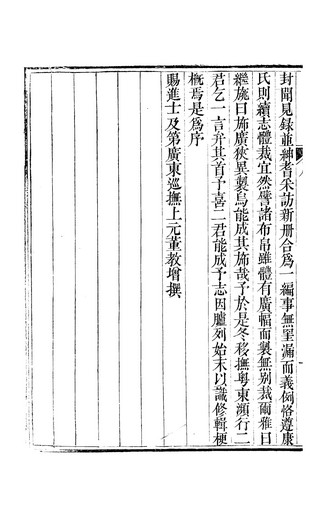 封聞見錄並紳耆采訪新冊合為一編事無罣漏而義例恪遵康
氏則續志體裁宜然譬諸布帛雖體有廣幅而製無别裁爾雅曰
繼施曰施廣狹異製烏能成其施哉予於是冬移撫粤東瀕行二
君乞一言弁其首予喜二君能成予志因臚列始末以識修輯梗
概焉是為序
賜進士及第廣東巡撫上元董教增撰